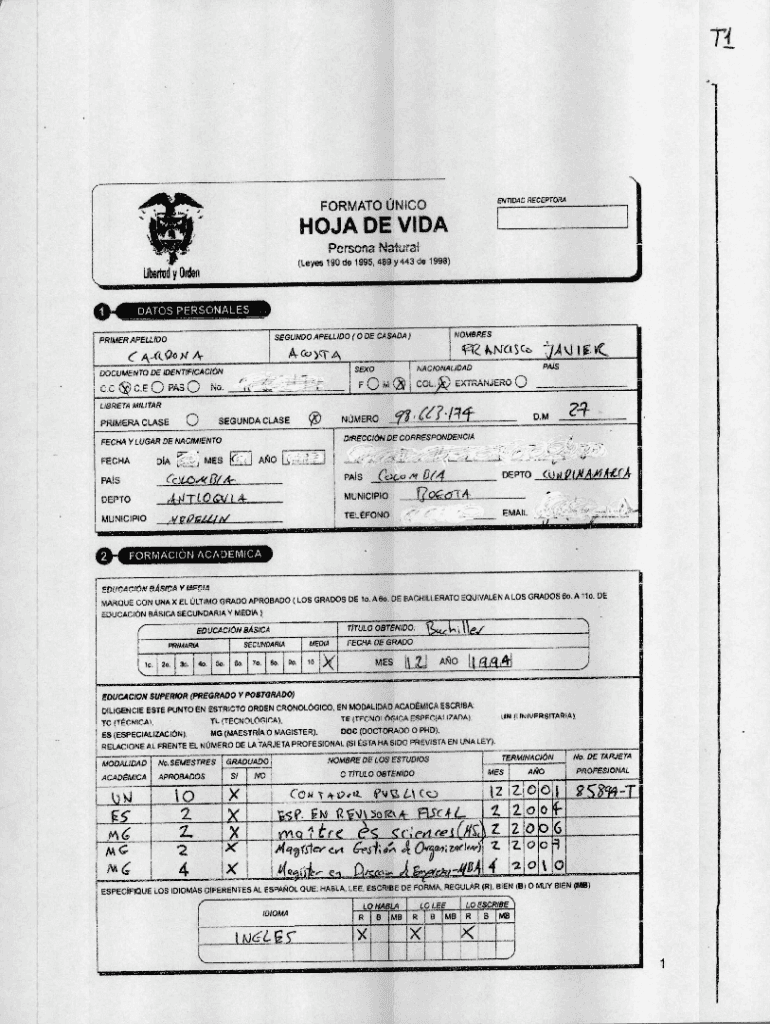 T1
FORMATO ÚNICO
HOJA DE VIDA
Persona Natural
(Leyes 190 de 1995, 489 y 443 de 1998)
Libertad y Orden
ENTIDAD RECEPTORA
1 DATOS PERSONALES
PRIMER APELLIDO SEGUNDO APELLIDO ( O DE CASADA ) NOMBRES
CARDONA ACOSTA FRANCISCO JAVIER
DOCUMENTO DE IDENTIFICACIÓN SEXO NACIONALIDAD PAÍS
C.C X C.E PAS No. F M X COL. X EXTRANJERO
LIBRETA MILITAR
PRIMERA CLASE SEGUNDA CLASE X NÚMERO 98.663.174 D.M 27
FECHA Y LUGAR DE NACIMIENTO DIRECCIÓN DE CORRESPONDENCIA
FECHA DÍA MES AÑO
PAÍS COLOMBIA PAÍS COLOMBIA DEPTO CUNDINAMARCA
DEPTO ANTIOQUIA MUNICIPIO BOGOTA
MUNICIPIO MEDELLIN TELÉFONO EMAIL
2 FORMACIÓN ACADEMICA
EDUCACIÓN BÁSICA Y MEDIA
MARQUE CON UNA X EL ÚLTIMO GRADO APROBADO ( LOS GRADOS DE 1o. A 6o. DE BACHILLERATO EQUIVALEN A LOS GRADOS 6o. A 11o. DE
EDUCACIÓN BÁSICA SECUNDARIA Y MEDIA )
EDUCACIÓN BÁSICA TÍTULO OBTENIDO: Bachiller
PRIMARIA SECUNDARIA MEDIA FECHA DE GRADO
1o. 2o. 3o. 4o. 5o. 6o. 7o. 8o. 9o. 10 X MES 12 AÑO 1994
EDUCACION SUPERIOR (PREGRADO Y POSTGRADO)
DILIGENCIE ESTE PUNTO EN ESTRICTO ORDEN CRONOLÓGICO, EN MODALIDAD ACADÉMICA ESCRIBA:
TC (TÉCNICA), TL (TECNOLÓGICA), TE (TECNOLÓGICA ESPECIALIZADA), UN (UNIVERSITARIA),
ES (ESPECIALIZACIÓN), MG (MAESTRÍA O MAGISTER), DOC (DOCTORADO O PHD),
RELACIONE AL FRENTE EL NÚMERO DE LA TARJETA PROFESIONAL (SI ÉSTA HA SIDO PREVISTA EN UNA LEY).
MODALIDAD No. SEMESTRES GRADUADO NOMBRE DE LOS ESTUDIOS TERMINACIÓN No. DE TARJETA
ACADÉMICA APROBADOS SI NO O TÍTULO OBTENIDO MES AÑO PROFESIONAL
UN 10 X CONTADOR PUBLICO 12 2001 85899-T
ES 2 X ESP. EN REVISORIA FISCAL 2 2004
MG 2 X maître ès sciences (MSc) 2 2006
MG 2 X Magister en Gestión de Organizaciones 2 2007
MG 4 X Magister en Dirección de Empresas-MBA 4 2010
ESPECIFIQUE LOS IDIOMAS DIFERENTES AL ESPAÑOL QUE: HABLA, LEE, ESCRIBE DE FORMA, REGULAR (R), BIEN (B) O MUY BIEN (MB)
IDIOMA LO HABLA LO LEE LO ESCRIBE
R B MB R B MB R B MB
INGLES X X X
1